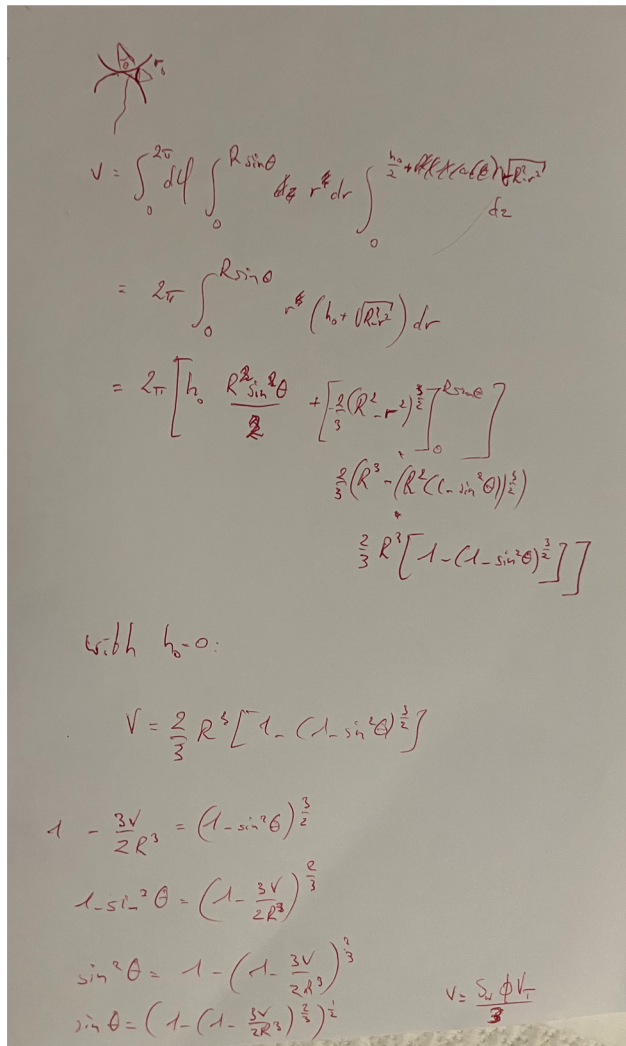 r₀
V = ∫₀^{2π} dφ ∫₀^{R sinθ} r dr ∫₀^{h₀/2 + √(R²-r²)} dz
= 2π ∫₀^{R sinθ} r (h₀ + √(R²-r²)) dr
= 2π [h₀ R² sin²θ / 2 + [-2/3 (R²-r²)^{3/2}]₀^{R sinθ}]
2/3 (R³ - (R²(1-sin²θ))^{3/2})
2/3 R³ [1-(1-sin²θ)^{3/2}]]
with h₀=0:
V = 2/3 R³ [1-(1-sin²θ)^{3/2}]
1 - 3V/2R³ = (1-sin²θ)^{3/2}
1-sin²θ = (1- 3V/2R³)^{2/3}
sin²θ = 1-(1- 3V/2R³)^{2/3}
sin θ = (1-(1- 3V/2R³)^{2/3})^{1/2}